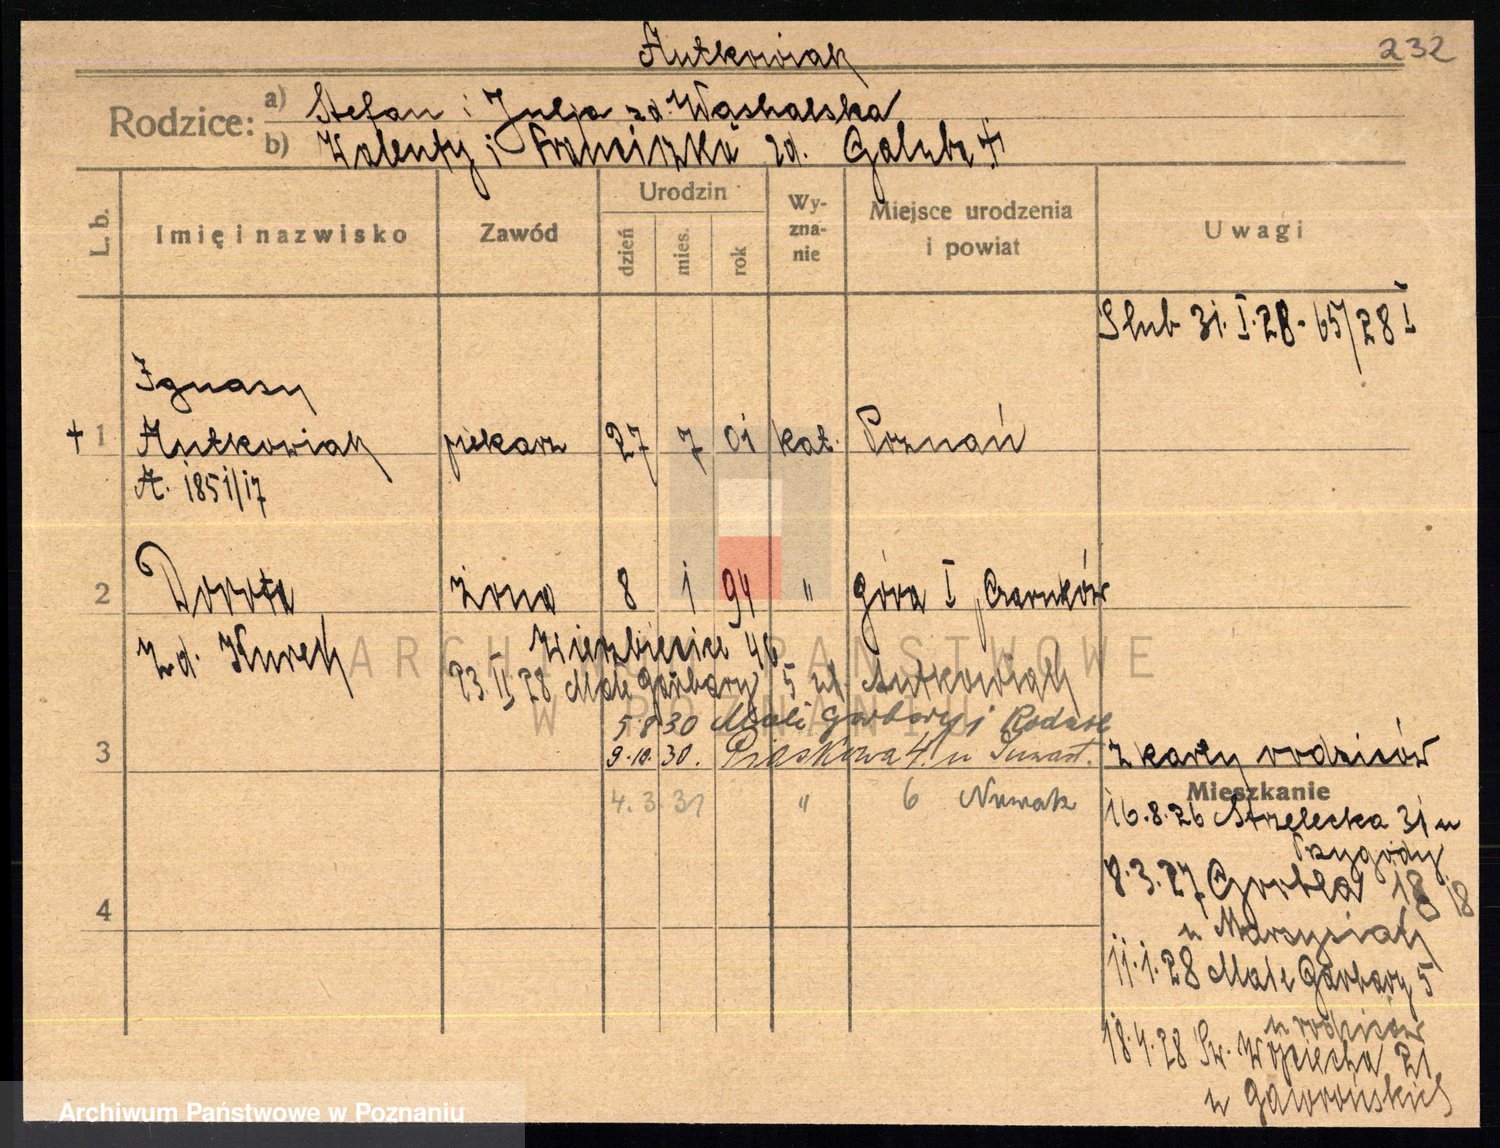 Antkowiak
232
Rodzice:
a) Stefan i Julja zd. Wąskalska
b) Walenty i Franciszka zd.
L. b.
Imię i nazwisko
Zawód
Urodzin
dzień
mies.
rok
Wy-
zna-
nie
Miejsce urodzenia
i powiat
Uwagi
Slub 31. I. 28 - 65/28 I
Ignacy
† 1 Antkowiak piekarz 27 7 01 kat. Poznań
A. 1851/17
2 Dorota żona 8 1 94 " Góra I, Czarnków
zd. Kurek
Wierzbięcice 46
23 II 28 Małe Garbary 5 u Antkowiak
5.8.30 Małe Garbary 1
3
9.10.30. Piaskowa 4
z karty rodziców
Mieszkanie
4.3.31 " 6 Nowak
16.8.26 Strzelecka 31 u
Przygody
8.3.27 Grobla 18 18
4
u Marsysiak
11.1.28 Małe Garbary 5
u rodziców
18.4.28 Św. Wojciecha 21
u Gaworońskich
ARCHIWUM PAŃSTWOWE
W POZNANIU
Archiwum Państwowe w Poznaniu